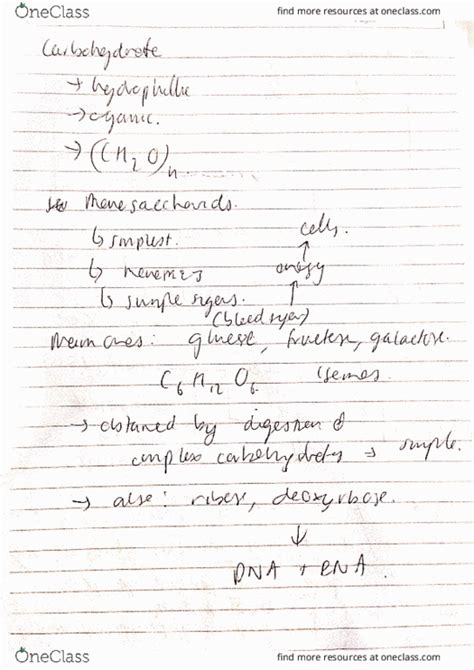 OneClass
find more resources at oneclass.com
Carbohydrate
→ hydrophillic
→ organic.
→ (CH₂O)n
Monosaccharids.
↳ simplest. cells.
↑
↳ monomers energy
↑
↳ simple sugars.
(blood sugar)
Main ones: glucose, fructose, galactose.
C₆H₁₂O₆ isomers
→ obtained by digestion of
complex carbohydrates → simple.
→ also: ribose, deoxyribose.
↓
DNA + RNA.
OneClass
find more resources at oneclass.com